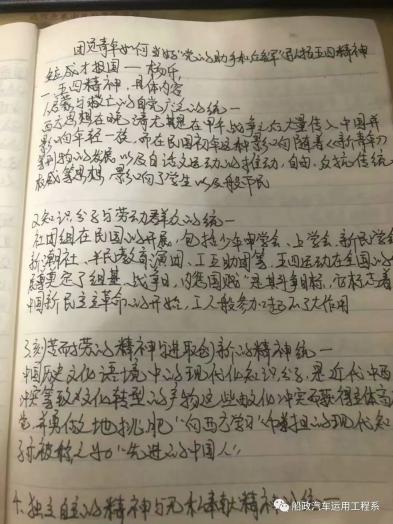 团员青年如何当好"党的助手和后备军"弘扬五四精神
成才报国——杨乐
一、五四精神,具体内容
1.启蒙与救亡的自觉广泛的统一
西方思想在晚清尤其是在甲午战争之后大量传入中国并
影响年轻一拨,而在民国初年这种影响随着《新青年》
等刊物的发展以及白话文运动的推动,自由、反抗传统
权威等思想,影响了学生以及一般市民
2.知识分子与劳动群众的统一
社团组在民国的开展,包括少年中国学会、工学会、新民学会
新潮社、平民教育演讲团、工互助团等,五四运动在全国的
奠定了组基、战争日,内惩国贼"是其斗争目标,它标志着
中国新民主主义革命的开始,工人般参加起了大作用
3.刻苦而劳的精神与进取创新的精神统一
中国历史文化语境中的现代化知识分子,是近代中西
冲突导致文化转型的产物这些由文化冲突而获得主体高
觉并勇敢地挑肥"向西方学习"重担的现代知
亦被称之为"先进的中国人"
4.独立自主的精神与无私奉献精神的统一
船政汽车运用工程系